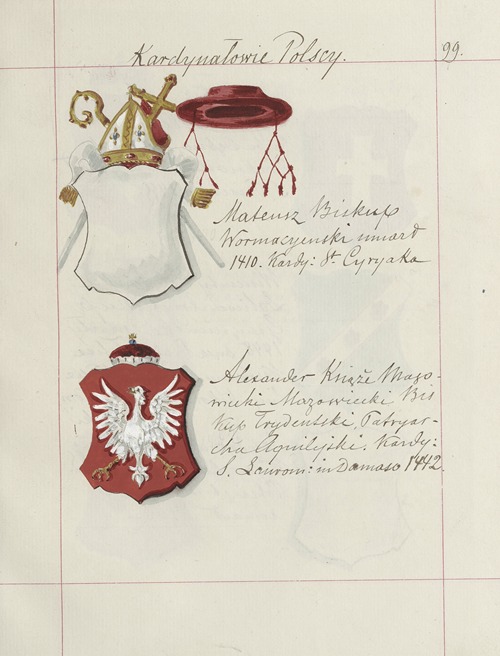 Kardynałowie Polscy.
99.
Mateusz Biskup
Wormacyenski umarł
1410. Kardy: St. Cyryaka
Alexander Książe Mazo-
wiecki Mazowiecki Bis
kup Trydentski, Patryar-
cha Aquilijski. Kardy:
S. Laurom: in Damaso 1442.